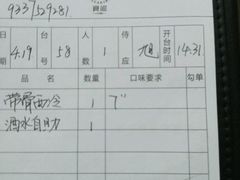 9337529281
日期 4.19 台号 58 人数 1 侍应 旭 开台时间 14:31
品名 数量 口味要求 勾单
带骨西冷 1 7"
酒水自助 1